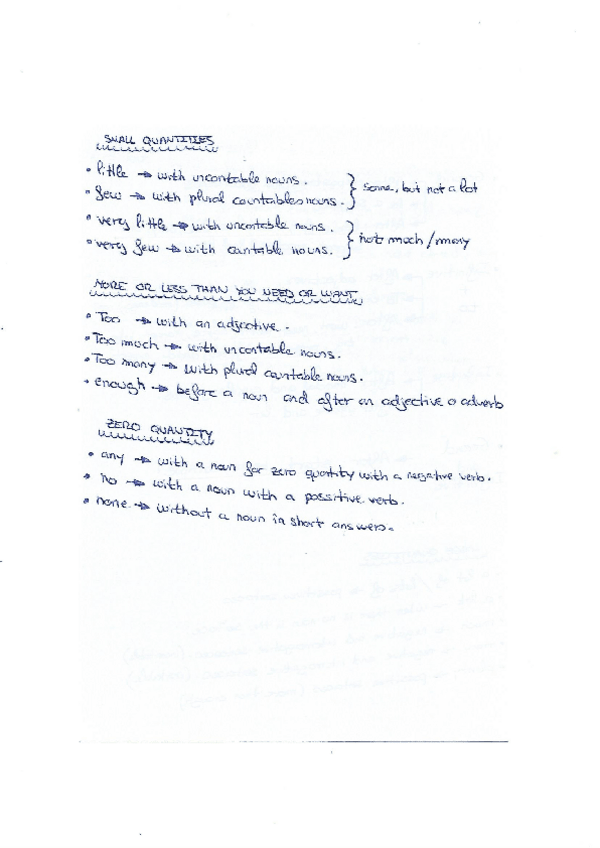 SMALL QUANTITIES
• little → with uncontable nouns. } some, but not a lot
• few → with plural countables nouns.
• very little → with uncontable nouns. } not much/many
• very few → with contable nouns.
MORE OR LESS THAN YOU NEED OR WANT
• Too → with an adjective.
• Too much → with uncontable nouns.
• Too many → with plural countable nouns.
• enough → before a noun and after an adjective o adverb
ZERO QUANTITY
• any → with a noun for zero quantity with a negative verb.
• no → with a noun with a possitive verb.
• none → without a noun in short answers.